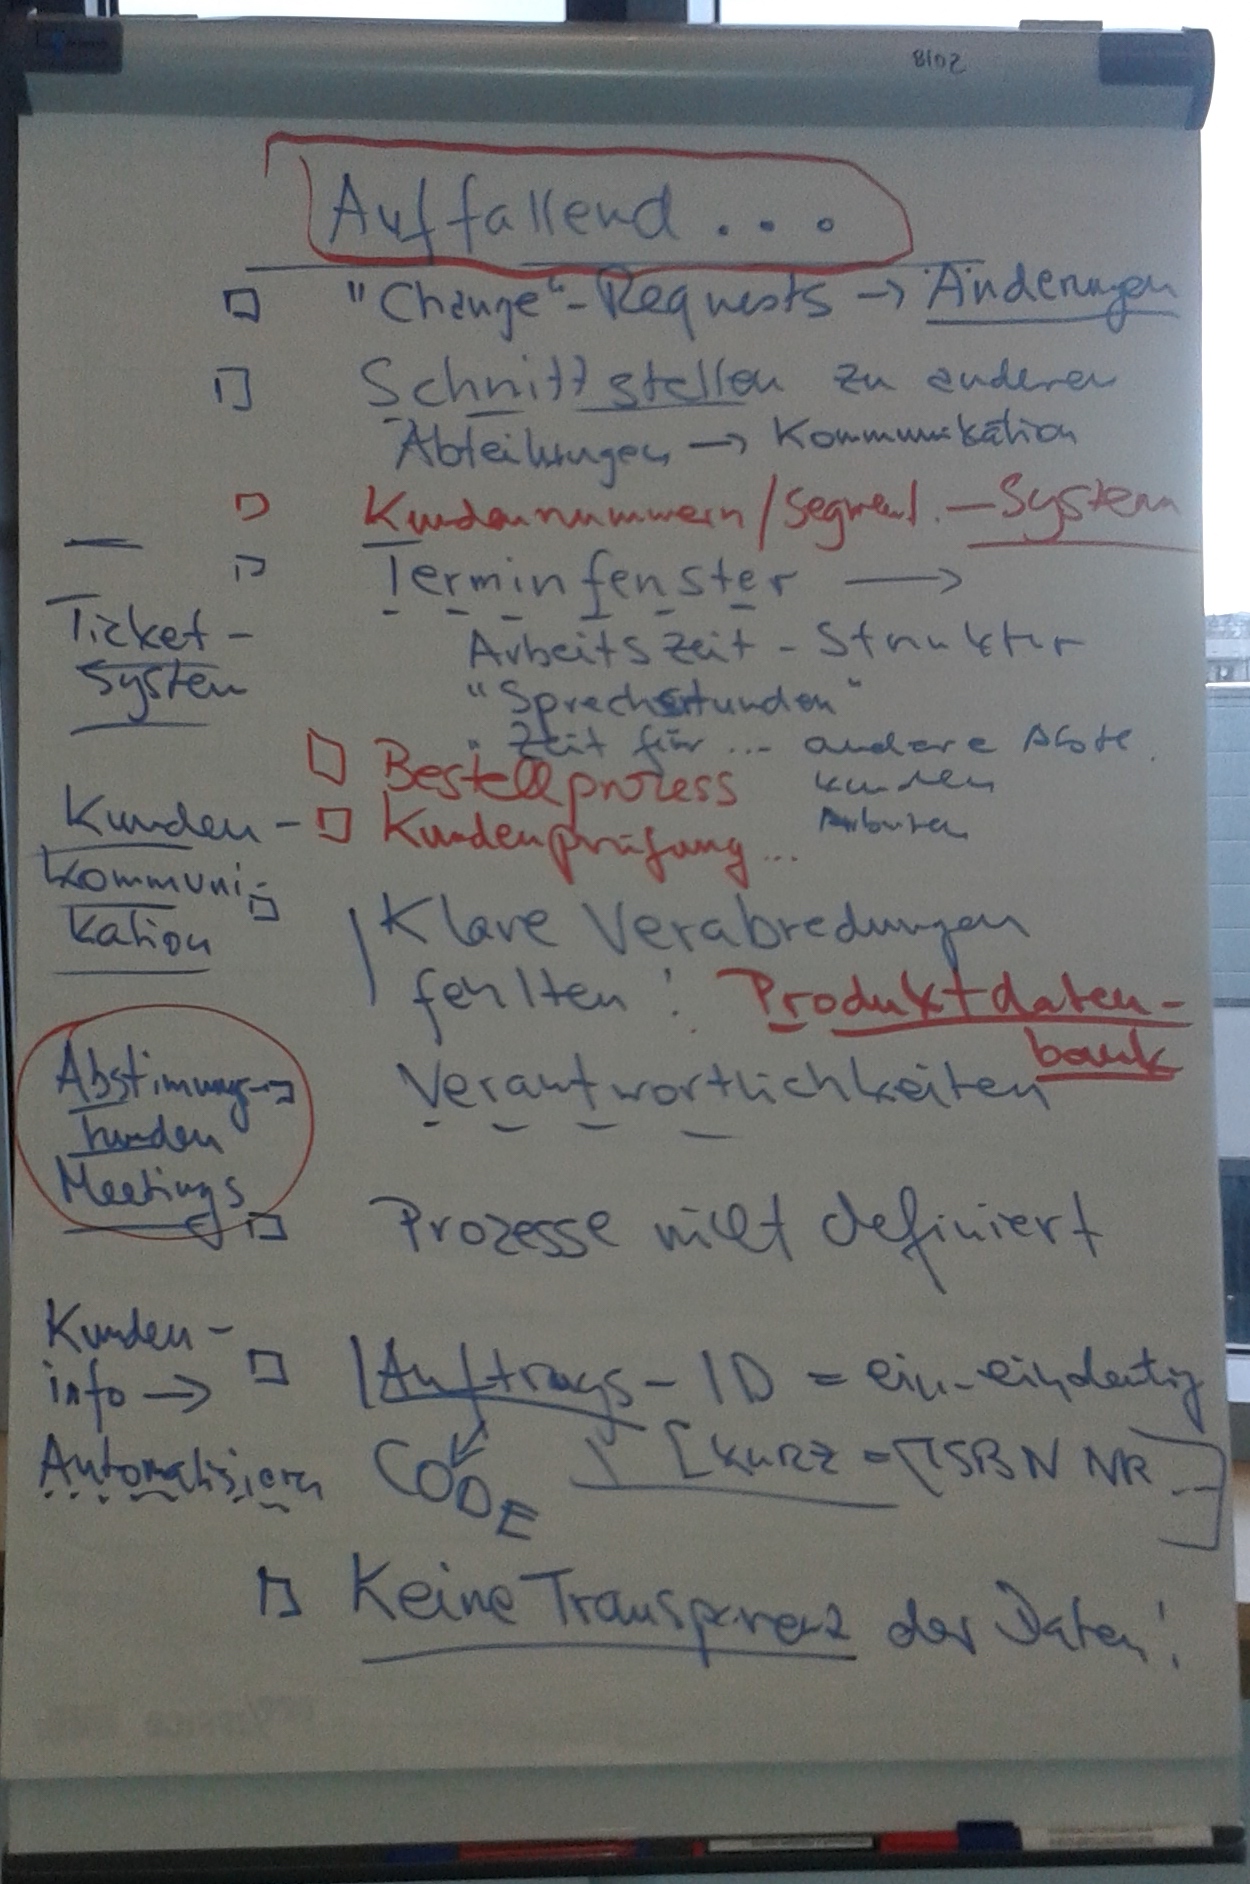 2018
Auffallend...
"Change"-Requests → Änderungen
Schnittstellen zu anderen
Abteilungen → Kommunikation
Kundennummern/Segment. - System
Terminfenster →
Arbeitszeit - Struktur
"Sprechstunden"
" Zeit für ... andere Abte.
Kunden
Arbeiten
Bestellprozess
Kundenprüfung...
Klare Verabredungen
fehlten!
Produktdaten-
bank
Verantwortlichkeiten
Prozesse nicht definiert
Auftrags-ID = ein-eindeutig
CODE
[KURZ = ISBN NR ...]
Keine Transparenz der Daten!
Ticket-
System
Kunden-
kommuni-
kation
Abstimung →
Kunden
Meetings
Kunden-
info →
Automatisieren